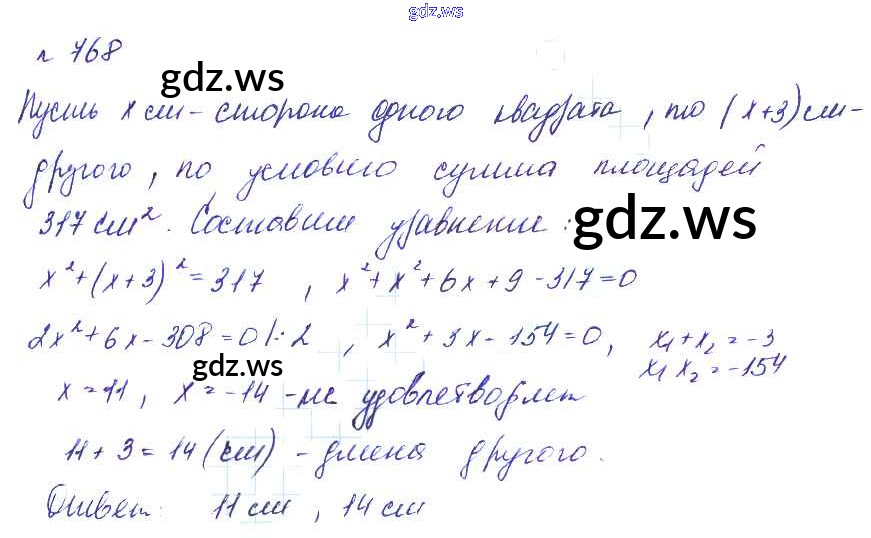 gdz.ws
n 768
gdz.ws
Пусть x см - сторона одного квадрата, то (x+3) см -
другого, по условию сумма площадей
317 см². Составим уравнение:
gdz.ws
x²+(x+3)²=317 , x²+x²+6x+9-317=0
2x²+6x-308=0 |:2 , x²+3x-154=0, x₁+x₂=-3
x₁x₂=-154
gdz.ws
x=11, x=-14 - не удовлетворяет
11+3=14 (см) - длина другого.
Ответ: 11 см, 14 см